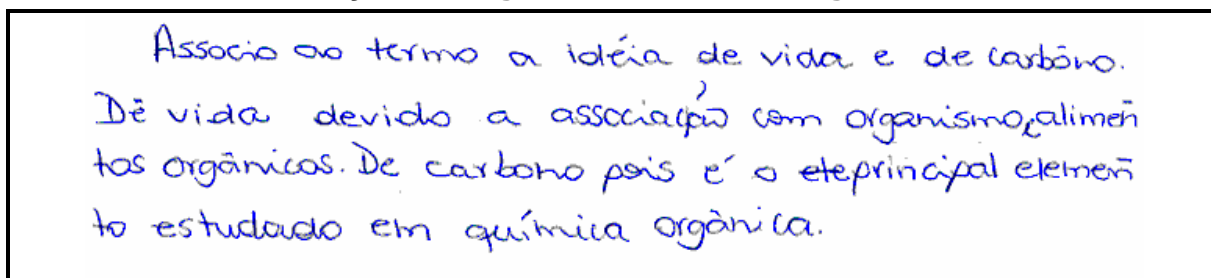 Associo ao termo a idéia de vida e de carbôno.
Dê vida devido a associação com organismo, alimen
tos orgânicos. De carbono pois é o ete principal elemen
to estudado em química orgânica.